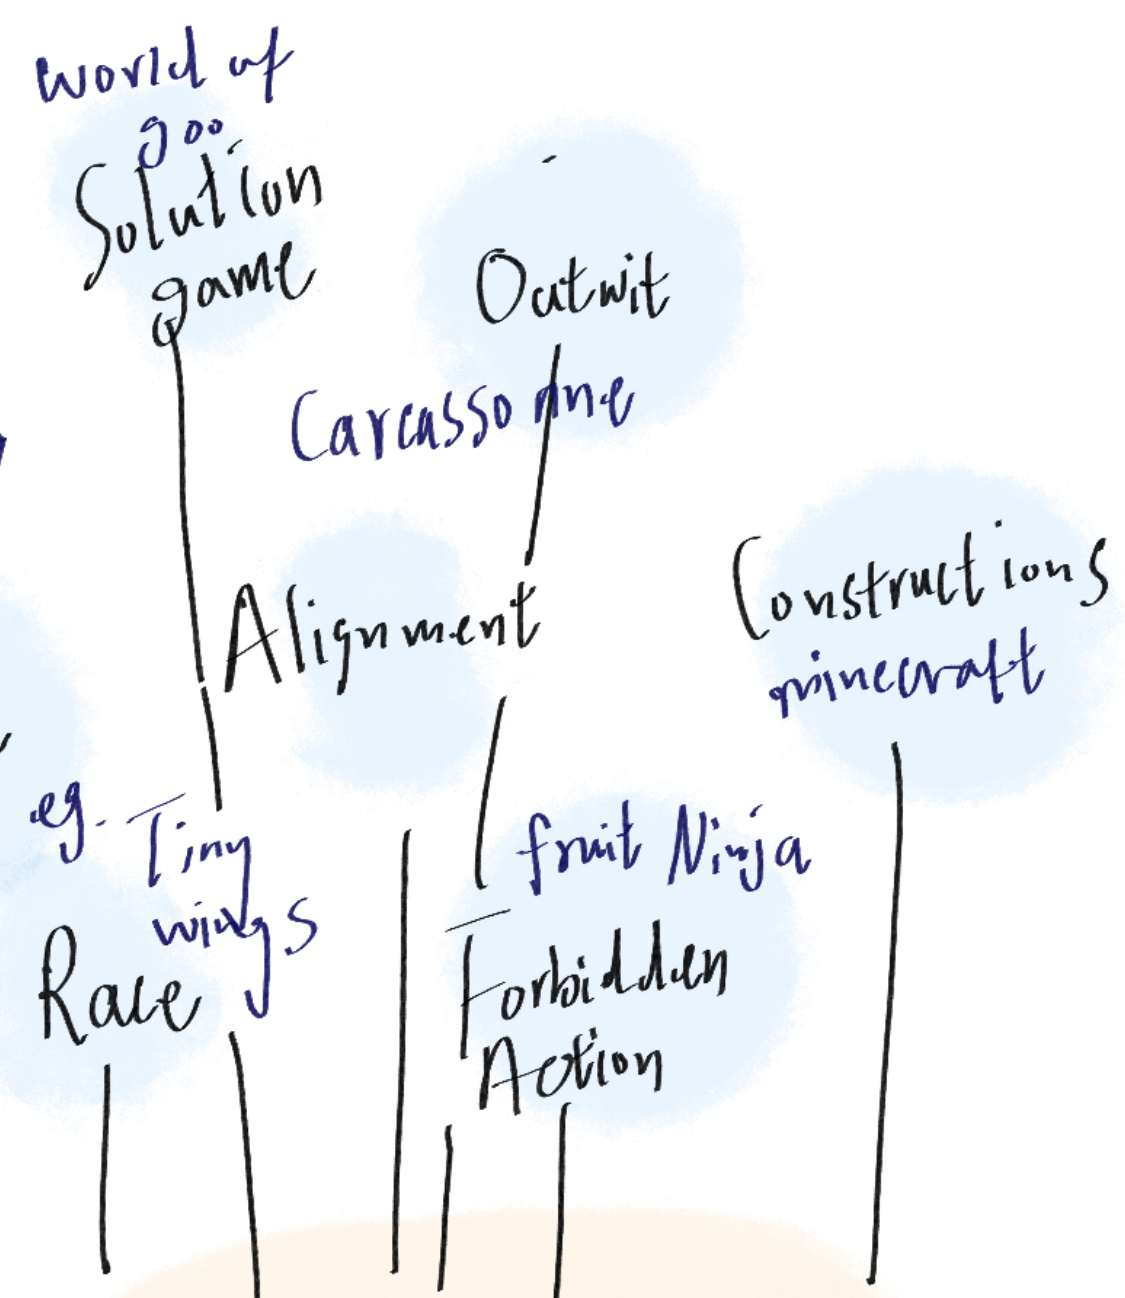 world of
goo
Solution
game
Outwit
Carcassonne
Alignment
Constructions
minecraft
eg. Tiny
wings
Race
fruit Ninja
Forbidden
Action